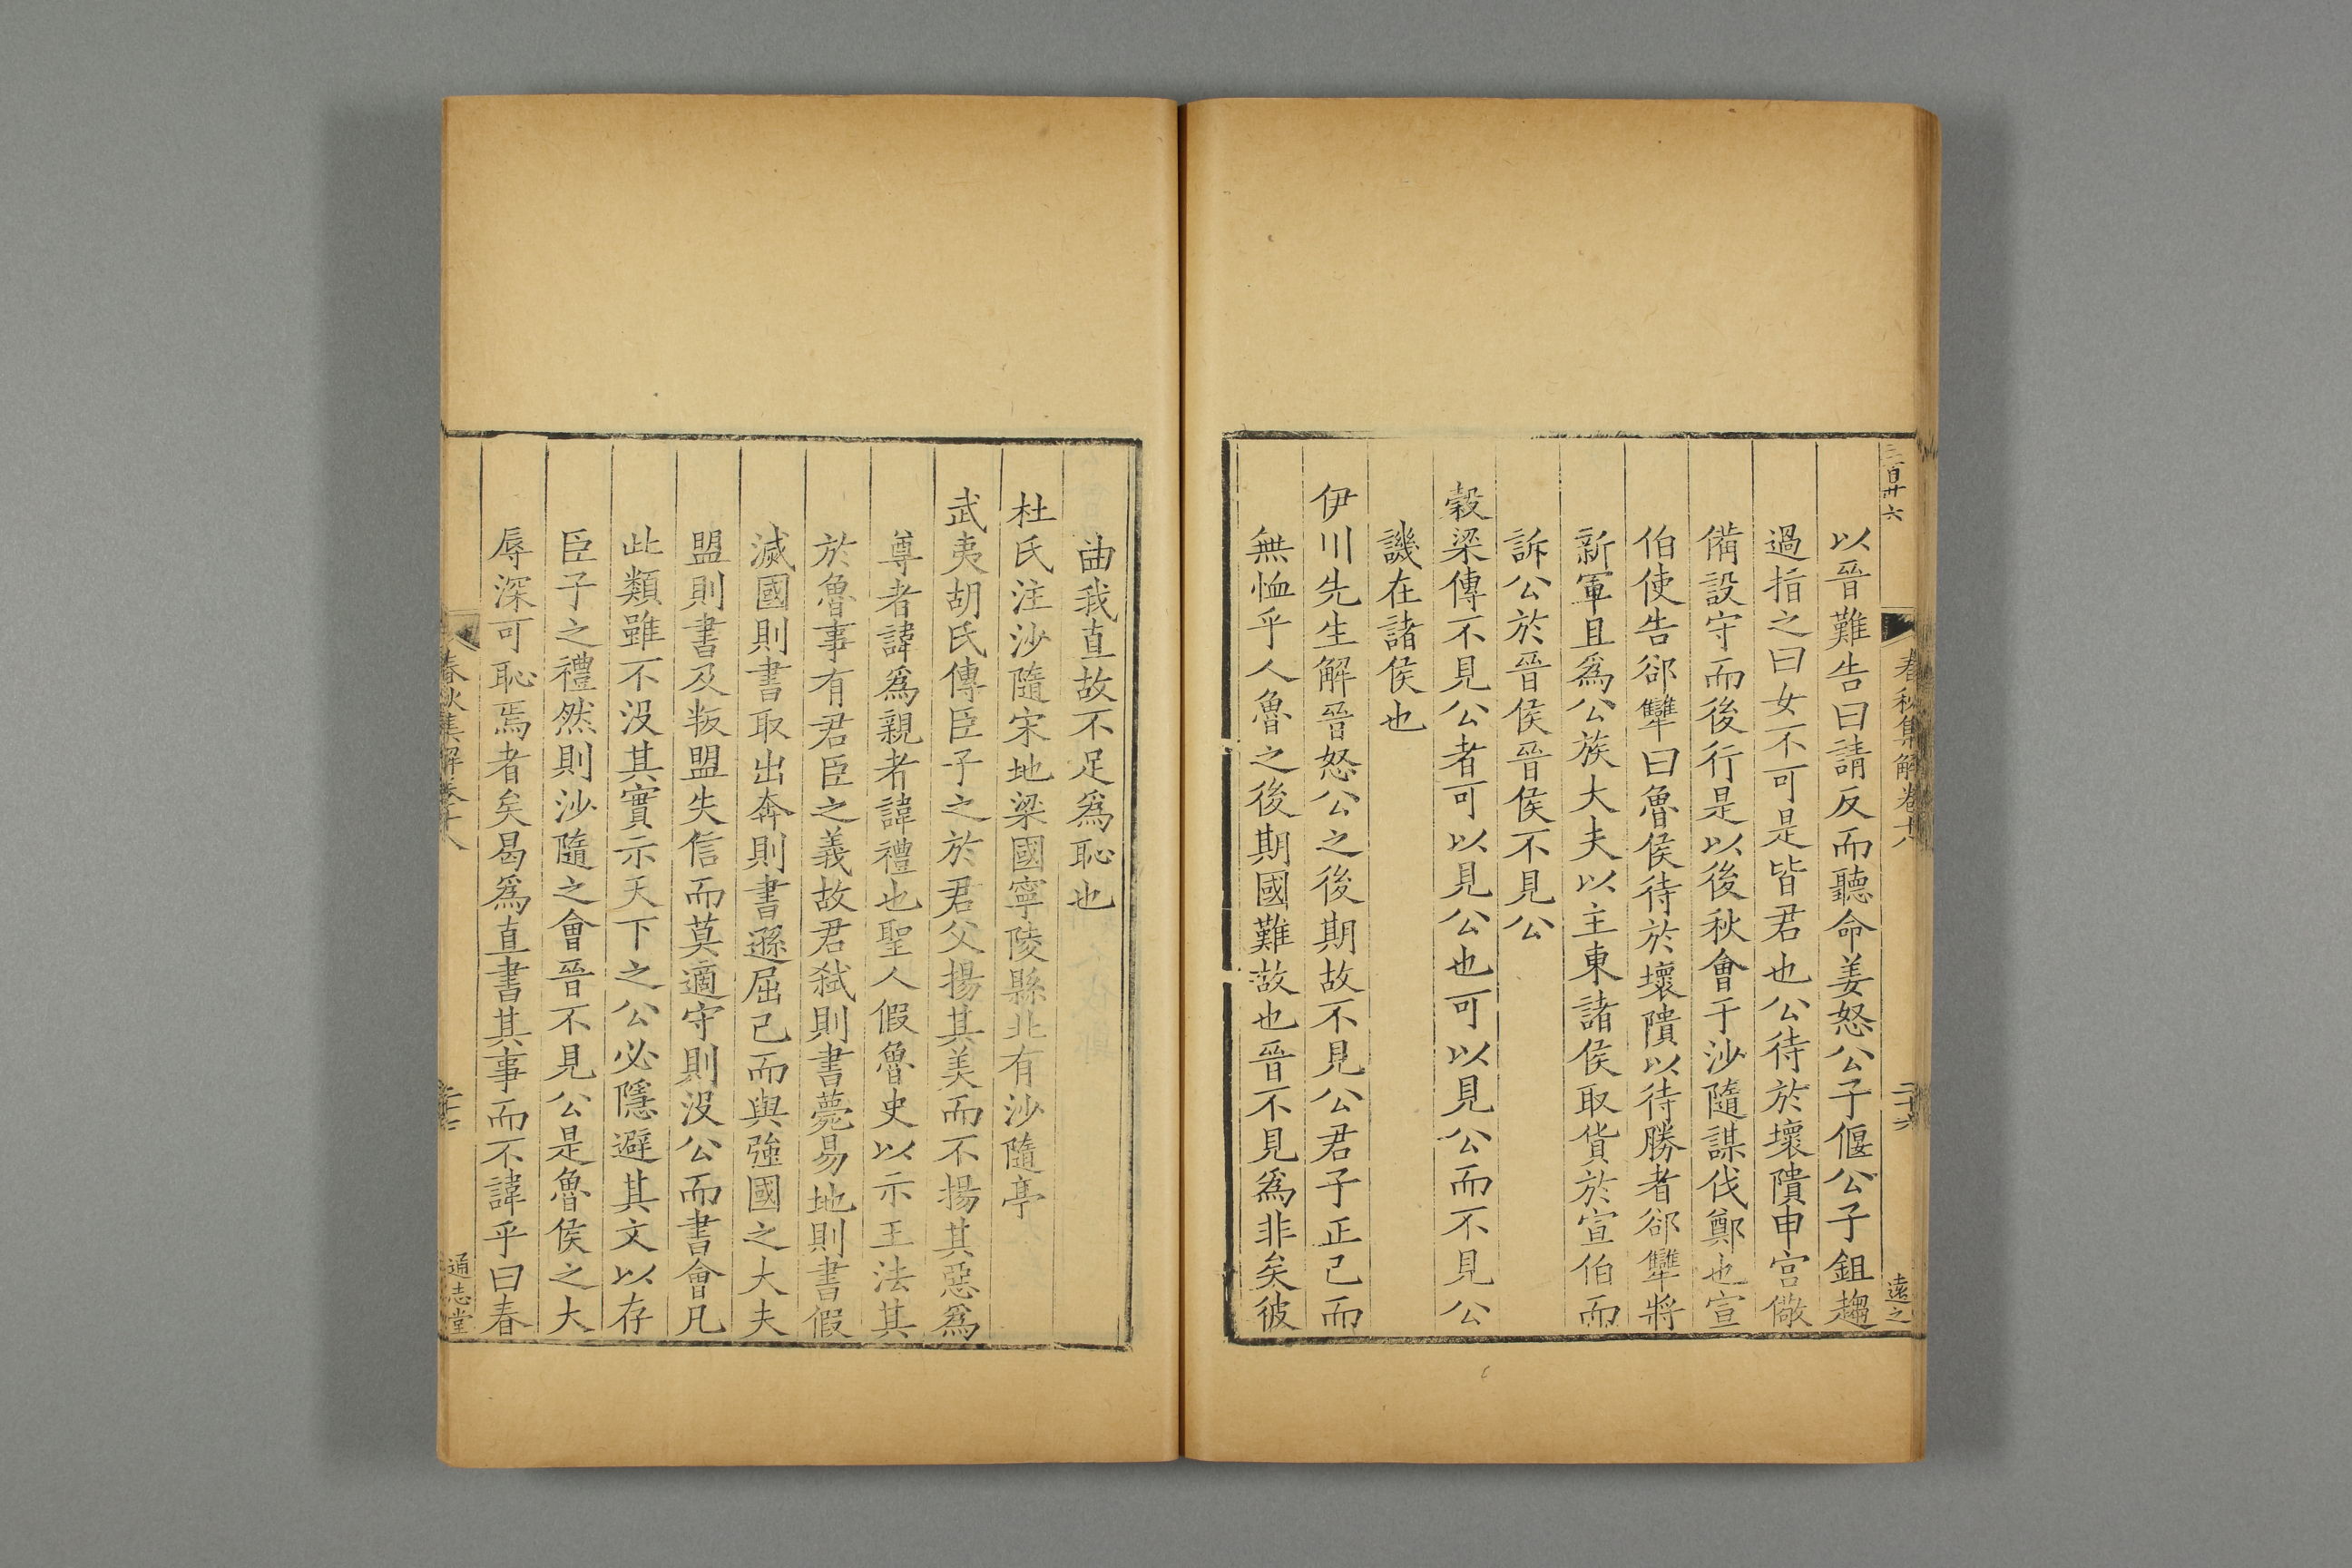 三百廿六
春秋集解卷十八
二十六
遠之
以晉難告曰請反而聽命姜怒公子偃公子鉏趨
過指之曰女不可是皆君也公待於壞隤申宫儆
備設守而後行是以後秋會于沙隨謀伐鄭也宣
伯使告郤犨曰魯侯待於壞隤以待勝者郤犨將
新軍且爲公族大夫以主東諸侯取貨於宣伯而
訴公於晉侯晉侯不見公
穀梁傳不見公者可以見公也可以見公而不見公
譏在諸侯也
伊川先生解晉怒公之後期故不見公君子正己而
無恤乎人魯之後期國難故也晉不見爲非矣彼
曲我直故不足爲恥也
杜氏注沙隨宋地梁國寧陵縣北有沙隨亭
武夷胡氏傳臣子之於君父揚其美而不揚其惡爲
尊者諱爲親者諱禮也聖人假魯史以示王法其
於魯事有君臣之義故君弒則書薨易地則書假
滅國則書取出奔則書遜屈己而與強國之大夫
盟則書及叛盟失信而莫適守則没公而書會凡
此類雖不没其實示天下之公必隱避其文以存
臣子之禮然則沙隨之會晉不見公是魯侯之大
辱深可恥焉者矣曷爲直書其事而不諱乎曰春
春秋集解卷十八
二十七
通志堂